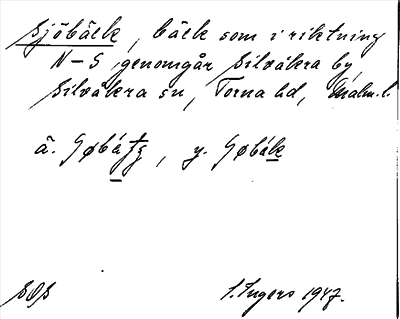 Sjöbäck, bäck som i riktning
N-S genomgår Silvåkra by,
Silvåkra sn, Torna hd, Malm.l.
ä. Søbátg, y. Søbák
SOS I. Ingers 1947.